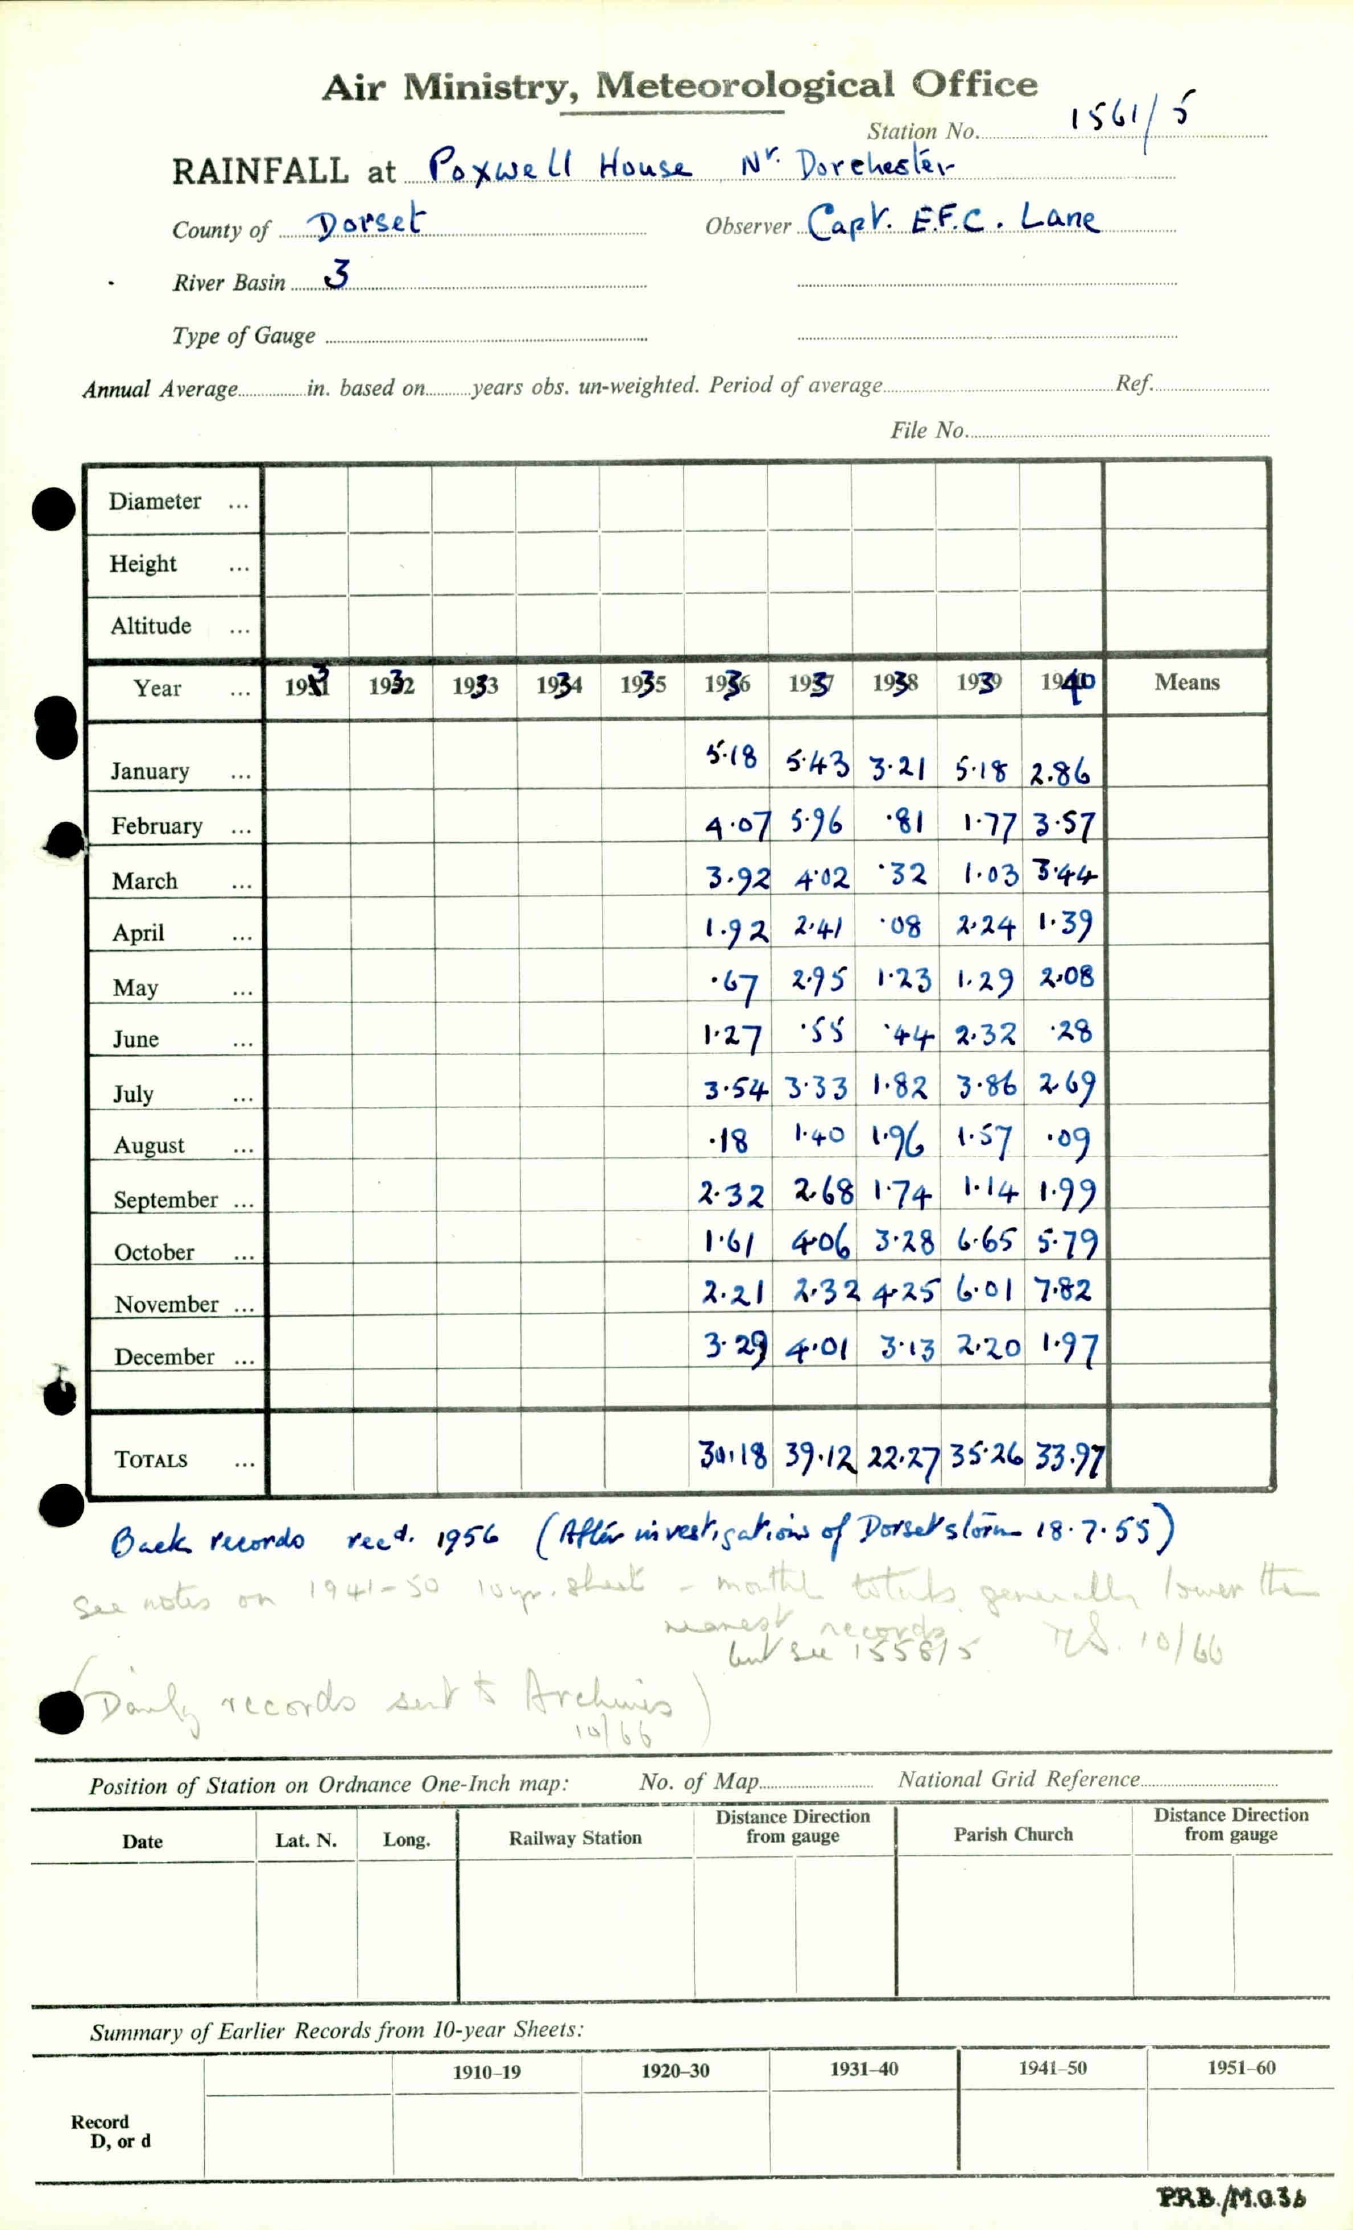 Air Ministry, Meteorological Office
Station No. 1561/5
RAINFALL at Poxwell House Nr. Dorchester
County of Dorset Observer Capt. E.F.C. Lane
River Basin 3
Type of Gauge
Annual Average in. based on years obs. un-weighted. Period of average Ref.
File No.
Diameter ...
Height ...
Altitude ...
Year ... 1931 1932 1933 1934 1935 1936 1937 1938 1939 1940 Means
January ... 5.18 5.43 3.21 5.18 2.86
February ... 4.07 5.96 .81 1.77 3.57
March ... 3.92 4.02 .32 1.03 3.44
April ... 1.92 2.41 .08 2.24 1.39
May ... .67 2.95 1.23 1.29 2.08
June ... 1.27 .55 .44 2.32 .28
July ... 3.54 3.33 1.82 3.86 2.69
August ... .18 1.40 1.96 1.57 .09
September ... 2.32 2.68 1.74 1.14 1.99
October ... 1.61 4.06 3.28 6.65 5.79
November ... 2.21 2.32 4.25 6.01 7.82
December ... 3.29 4.01 3.13 2.20 1.97
TOTALS ... 30.18 39.12 22.27 35.26 33.97
Back records recd. 1956 (After investigations of Dorset storm 18.7.55)
See notes on 1941-50 10 yr. sheet - month totals generally lower than
nearest records
but see 1558/5 10/66
(Daily records sent to Archives)
10/66
Position of Station on Ordnance One-Inch map: No. of Map National Grid Reference
Date Lat. N. Long. Railway Station Distance Direction from gauge Parish Church Distance Direction from gauge
Summary of Earlier Records from 10-year Sheets:
1910–19 1920–30 1931–40 1941–50 1951–60
Record
D, or d
P.R.B./M.O.36